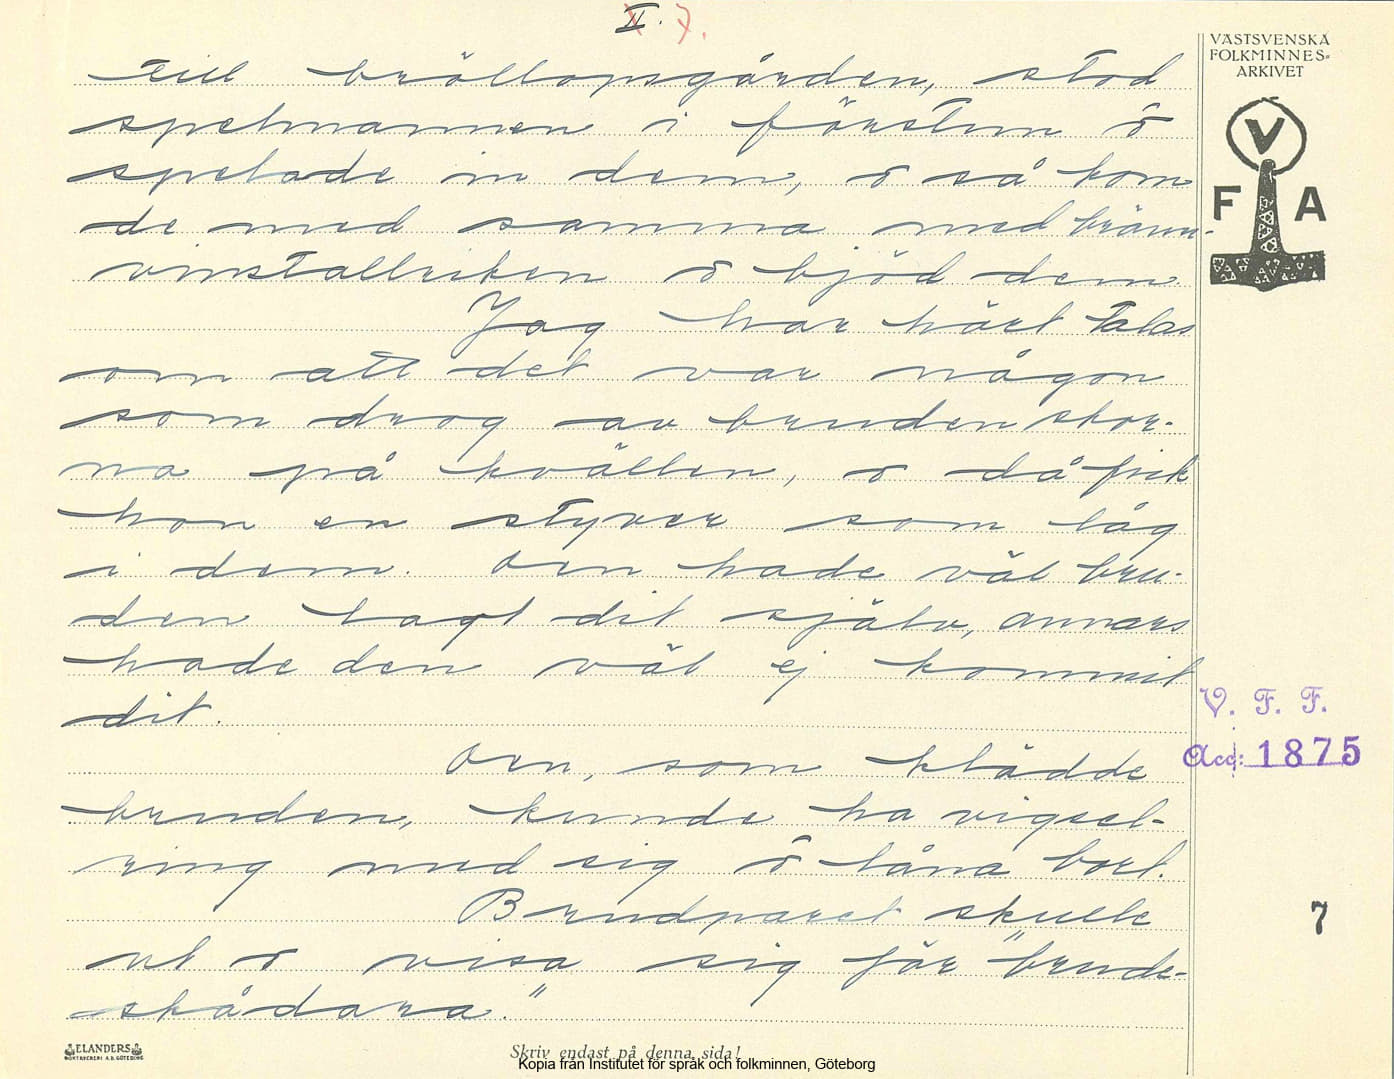 II. 7.
VÄSTSVENSKA
FOLKMINNES-
ARKIVET
V
F A
till bröllopsgården, stod
spelmannen i förstun ö
spelade in dem, ö så kom
de med samma med bränn-
vinstallriken ö bjöd dem.
Jag har hört talas
om att det var någon
som drog av bruden skor-
na på kvällen, ö då fick
hon en styver som låg
i dem. Den hade väl bru-
den lagt dit själv, annars
hade den väl ej kommit
dit.
V. F. F.
Acc: 1875
Den, som klädde
bruden, kunde ha vigsel-
ring med sig ö låna bort.
Brudparet skulle
7
ut ö visa sig för "brude-
skådara."
ELANDERS
BOKTRYCKERI A.B. GÖTEBORG
Skriv endast på denna sida!
Kopia från Institutet för språk och folkminnen, Göteborg